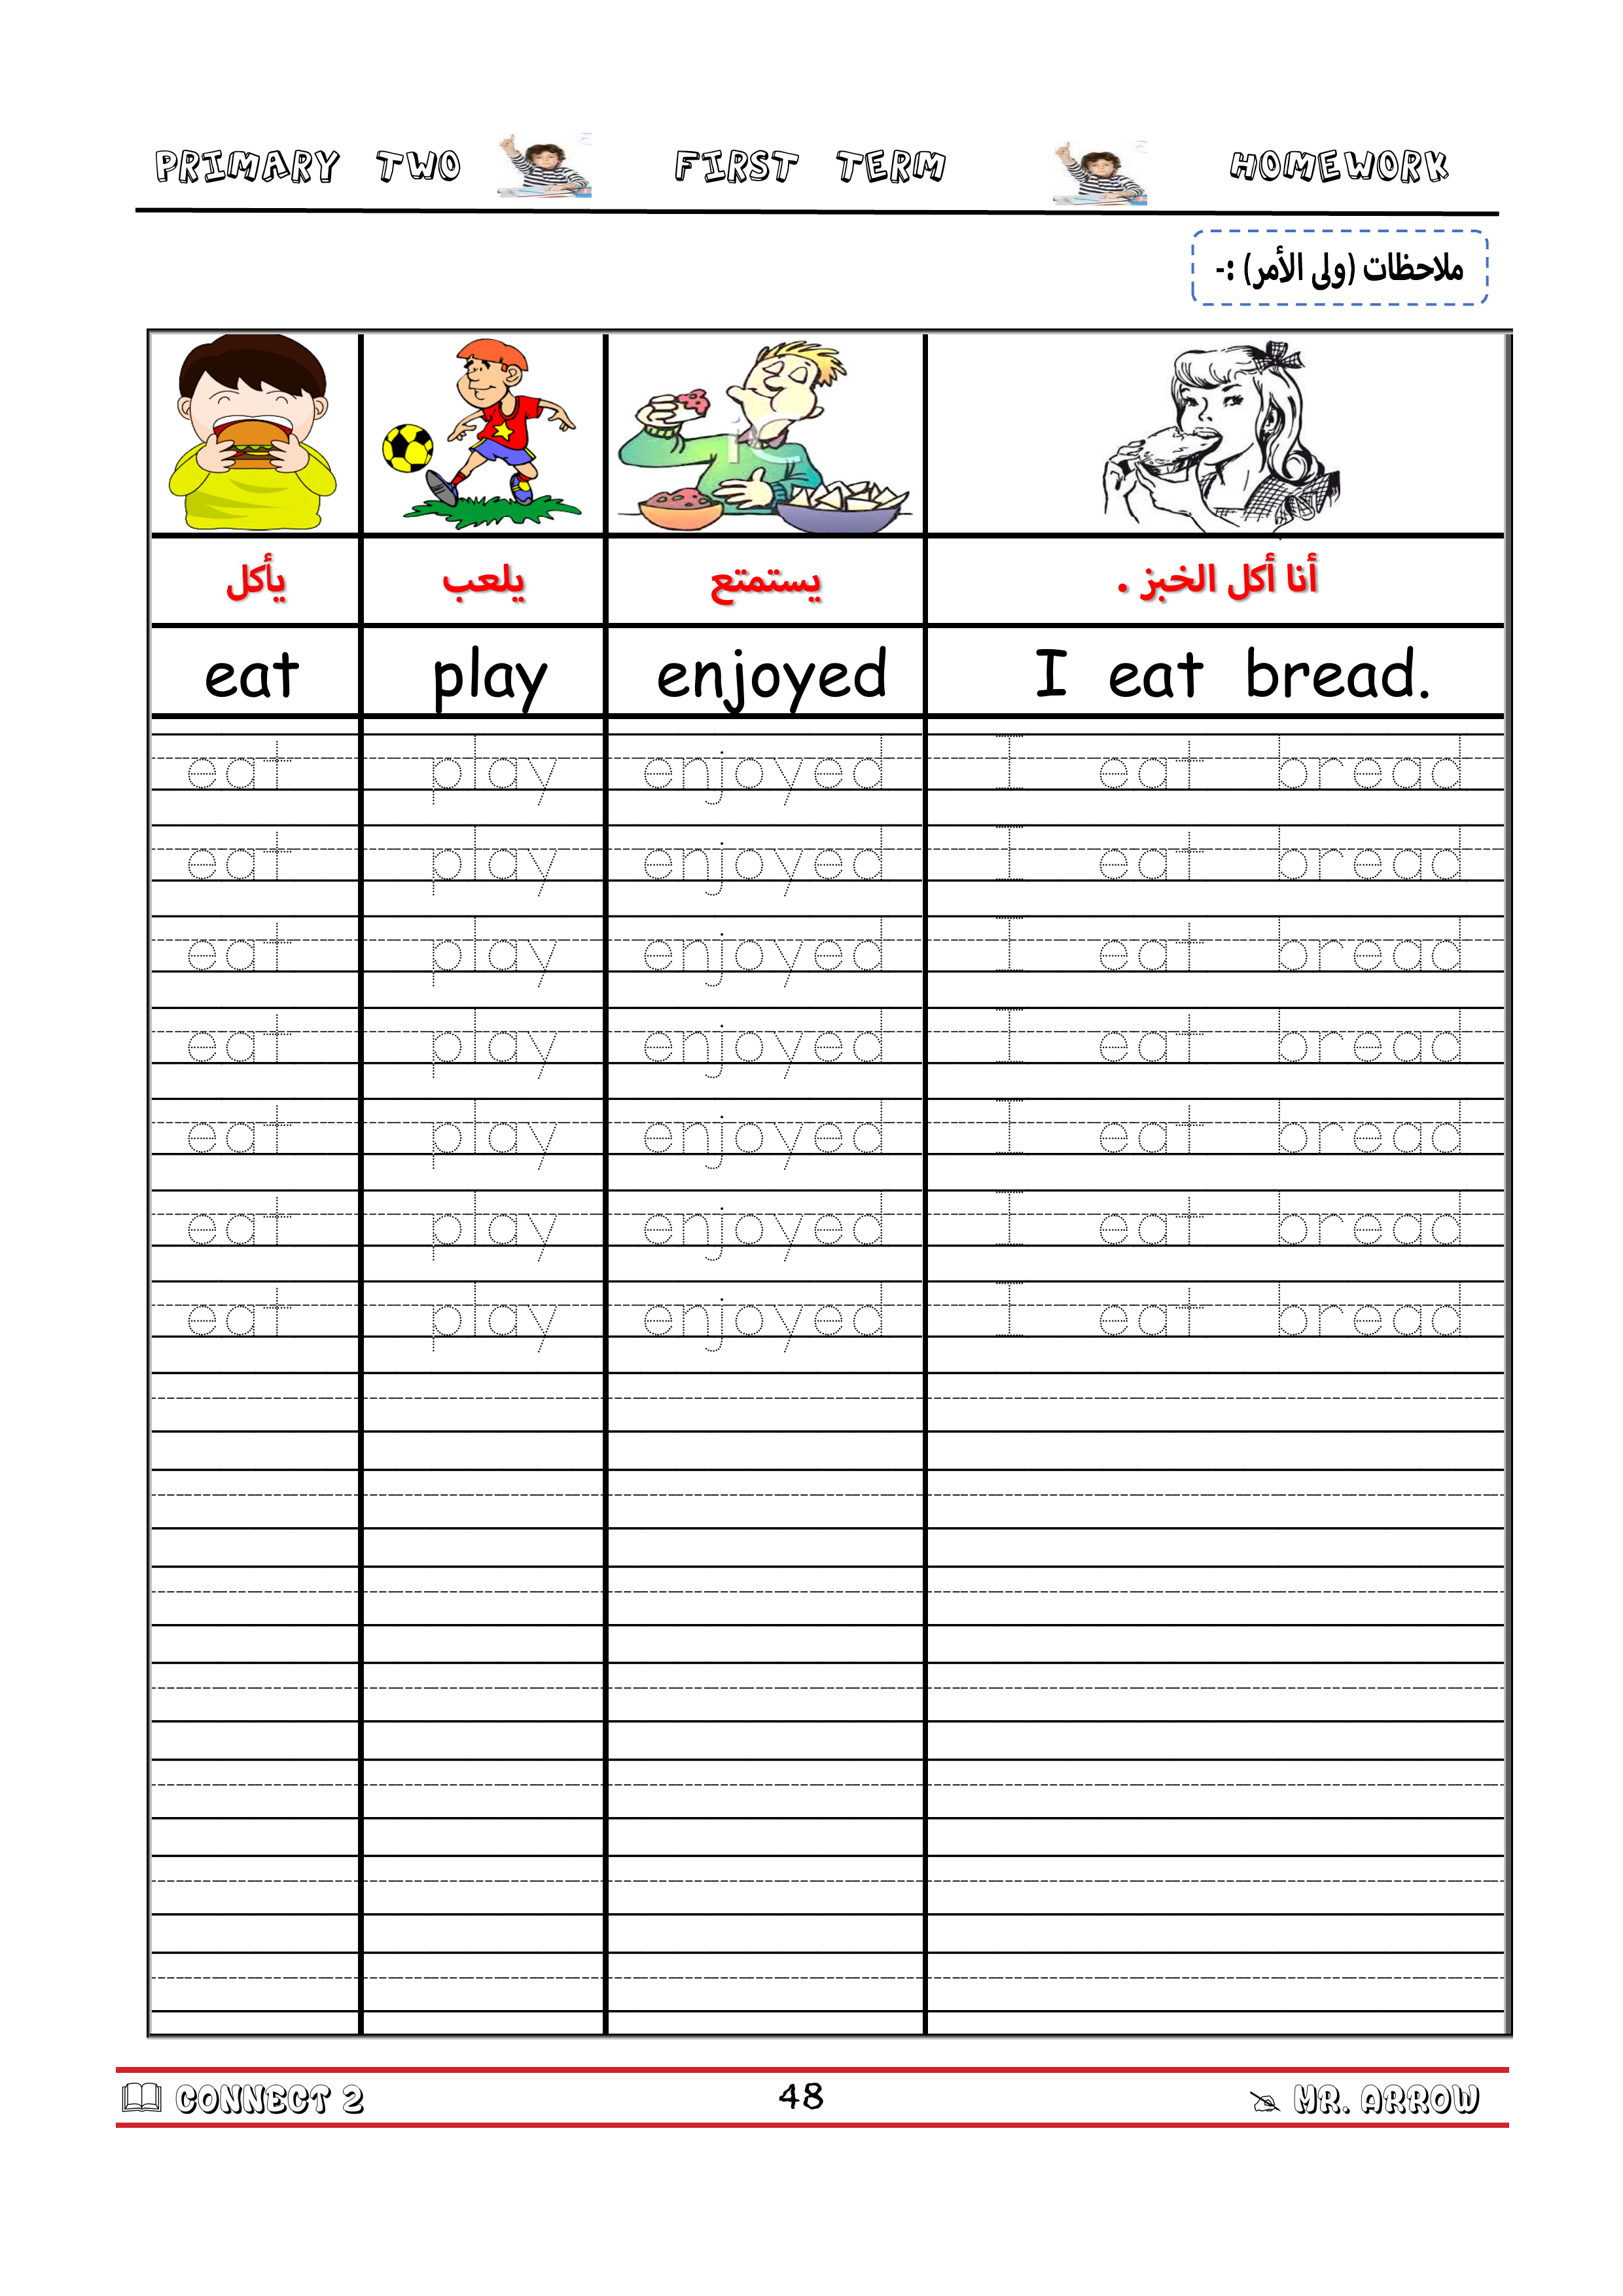 PRIMARY TWO FIRST TERM HOMEWORK
ملاحظات (ولى الأمر) :-
يأكل يلعب يستمتع أنا أكل الخبز .
eat play enjoyed I eat bread.
eat play enjoyed I eat bread
eat play enjoyed I eat bread
eat play enjoyed I eat bread
eat play enjoyed I eat bread
eat play enjoyed I eat bread
eat play enjoyed I eat bread
eat play enjoyed I eat bread
CONNECT 2 48 MR. ARROW